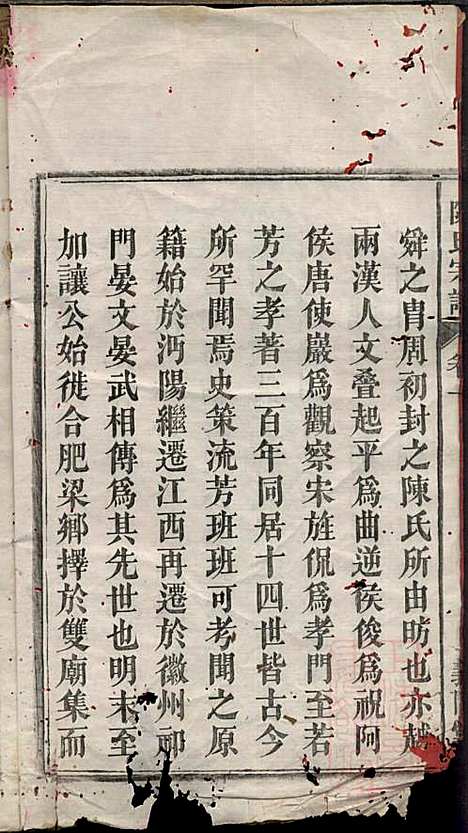 陳氏宗譜
卷一
舜之胄周初封之陳氏所由昉也亦越
兩漢人文叠起平爲曲逆侯俊爲祝阿
侯唐使巖爲觀察宋旌侃爲孝門至若
芳之孝著三百年同居十四世皆古今
所罕聞焉史策流芳班班可考聞之原
籍始於沔陽繼遷江西再遷於徽州祁
門晏文晏武相傳爲其先世也明末至
加讓公始徙合肥梁鄉擇於雙廟集而